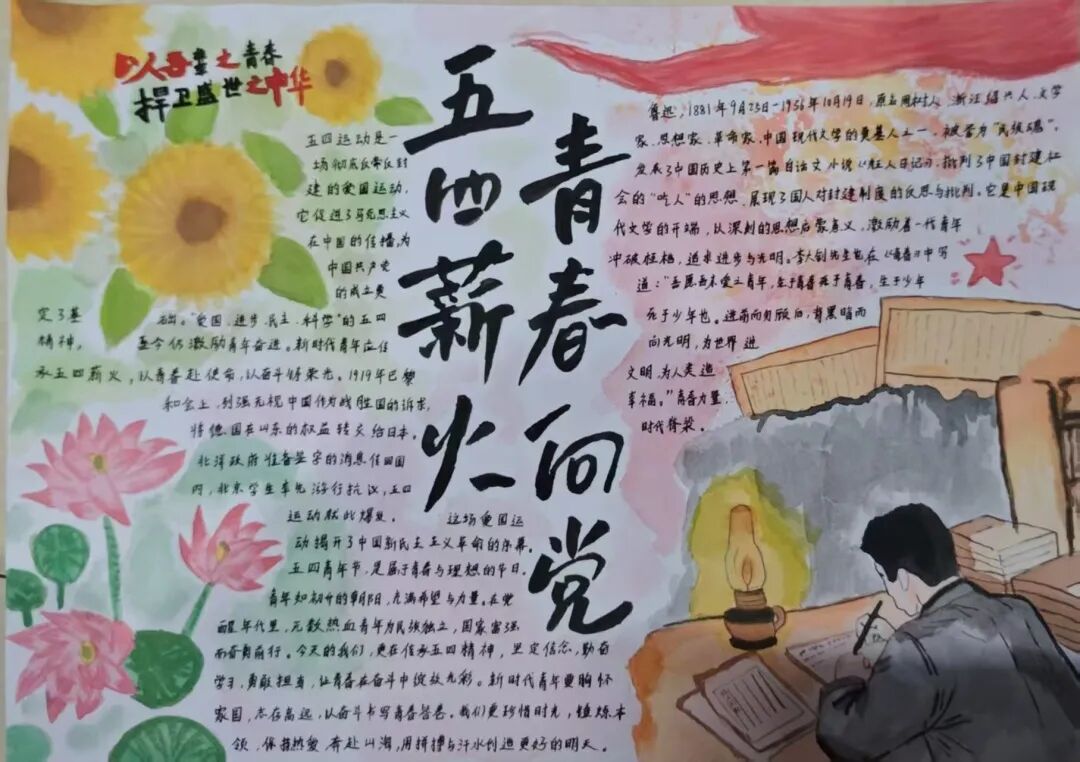 以吾辈之青春
捍卫盛世之中华
五四薪火
青春向党
五四运动是一
场彻底反帝反封
建的爱国运动，
它促进了马克思主义
在中国的传播，为
中国共产党
的成立奠
定了基础。“爱国、进步、民主、科学”的五四
精神，至今仍激励青年奋进。新时代青年应传
承五四薪火，以青春赴使命，以奋斗铸荣光。1919年巴黎
和会上，列强无视中国作为战胜国的诉求，
将德国在山东的权益转交给日本。
北洋政府准备签字的消息传回国
内，北京学生率先游行抗议，五四
运动就此爆发。 这场爱国运
动揭开了中国新民主主义革命的序幕。
五四青年节，是属于青春与理想的节日。
青年如初升的朝阳，充满希望与力量。在觉
醒年代里，无数热血青年为民族独立，国家富强
而奋勇前行。今天的我们，更在传承五四精神，坚定信念，勤奋
学习，勇敢担当，让青春在奋斗中绽放光彩。新时代青年要胸怀
家国，志在高远，以奋斗书写青春答卷。我们更珍惜时光，锤炼本
领，保持热爱，奔赴山海，用拼搏与汗水创造更好的明天。
鲁迅，1881年9月25日-1956年10月19日，原名周树人，浙江绍兴人，文学
家、思想家、革命家、中国现代文学的奠基人之一，被誉为“民族魂”。
发表了中国历史上第一篇白话文小说《狂人日记》，批判了中国封建社
会的“吃人”的思想，展现了国人对封建制度的反思与批判。它是中国现
代文学的开端，以深刻的思想启蒙意义，激励着一代青年
冲破桎梏，追求进步与光明。李大钊先生也在《青春》中写
道：“吾愿吾亲爱之青年，生于青春死于青春，生于少年
死于少年也。进前而勿顾后，背黑暗而
向光明，为世界进
文明，为人类造
幸福。”青春力量，
时代脊梁。